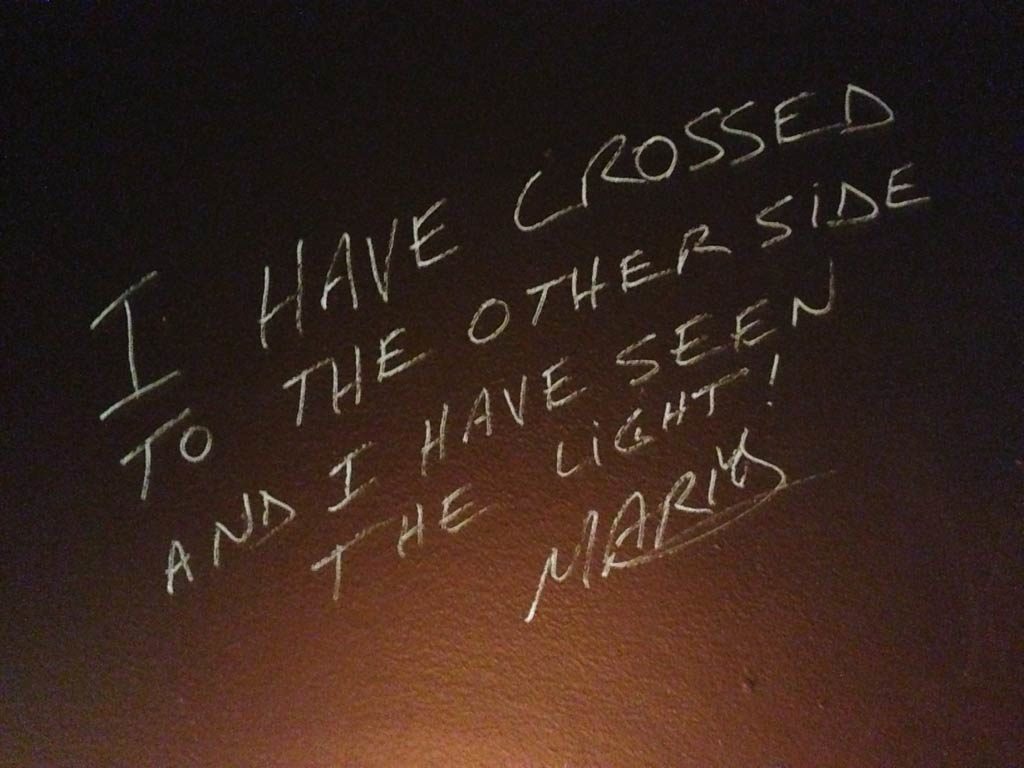 I HAVE CROSSED
TO THE OTHER SIDE
AND I HAVE SEEN
THE LIGHT!
MARIUS